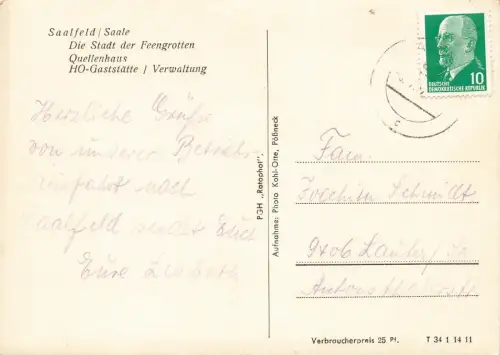 Saalfeld / Saale
Die Stadt der Feengrotten
Quellenhaus
HO-Gaststätte / Verwaltung
Herzliche Grüße
von unserer Betriebs-
nach
Saalfeld sendet Euch
Eure
PGH „Rotophot“.
Aufnahme: Photo Kohl-Otte, Pößneck
10
DEUTSCHE
DEMOKRATISCHE REPUBLIK
Fam.
Joachim Schmidt
Verbraucherpreis 25 Pf. T 34 1 14 11